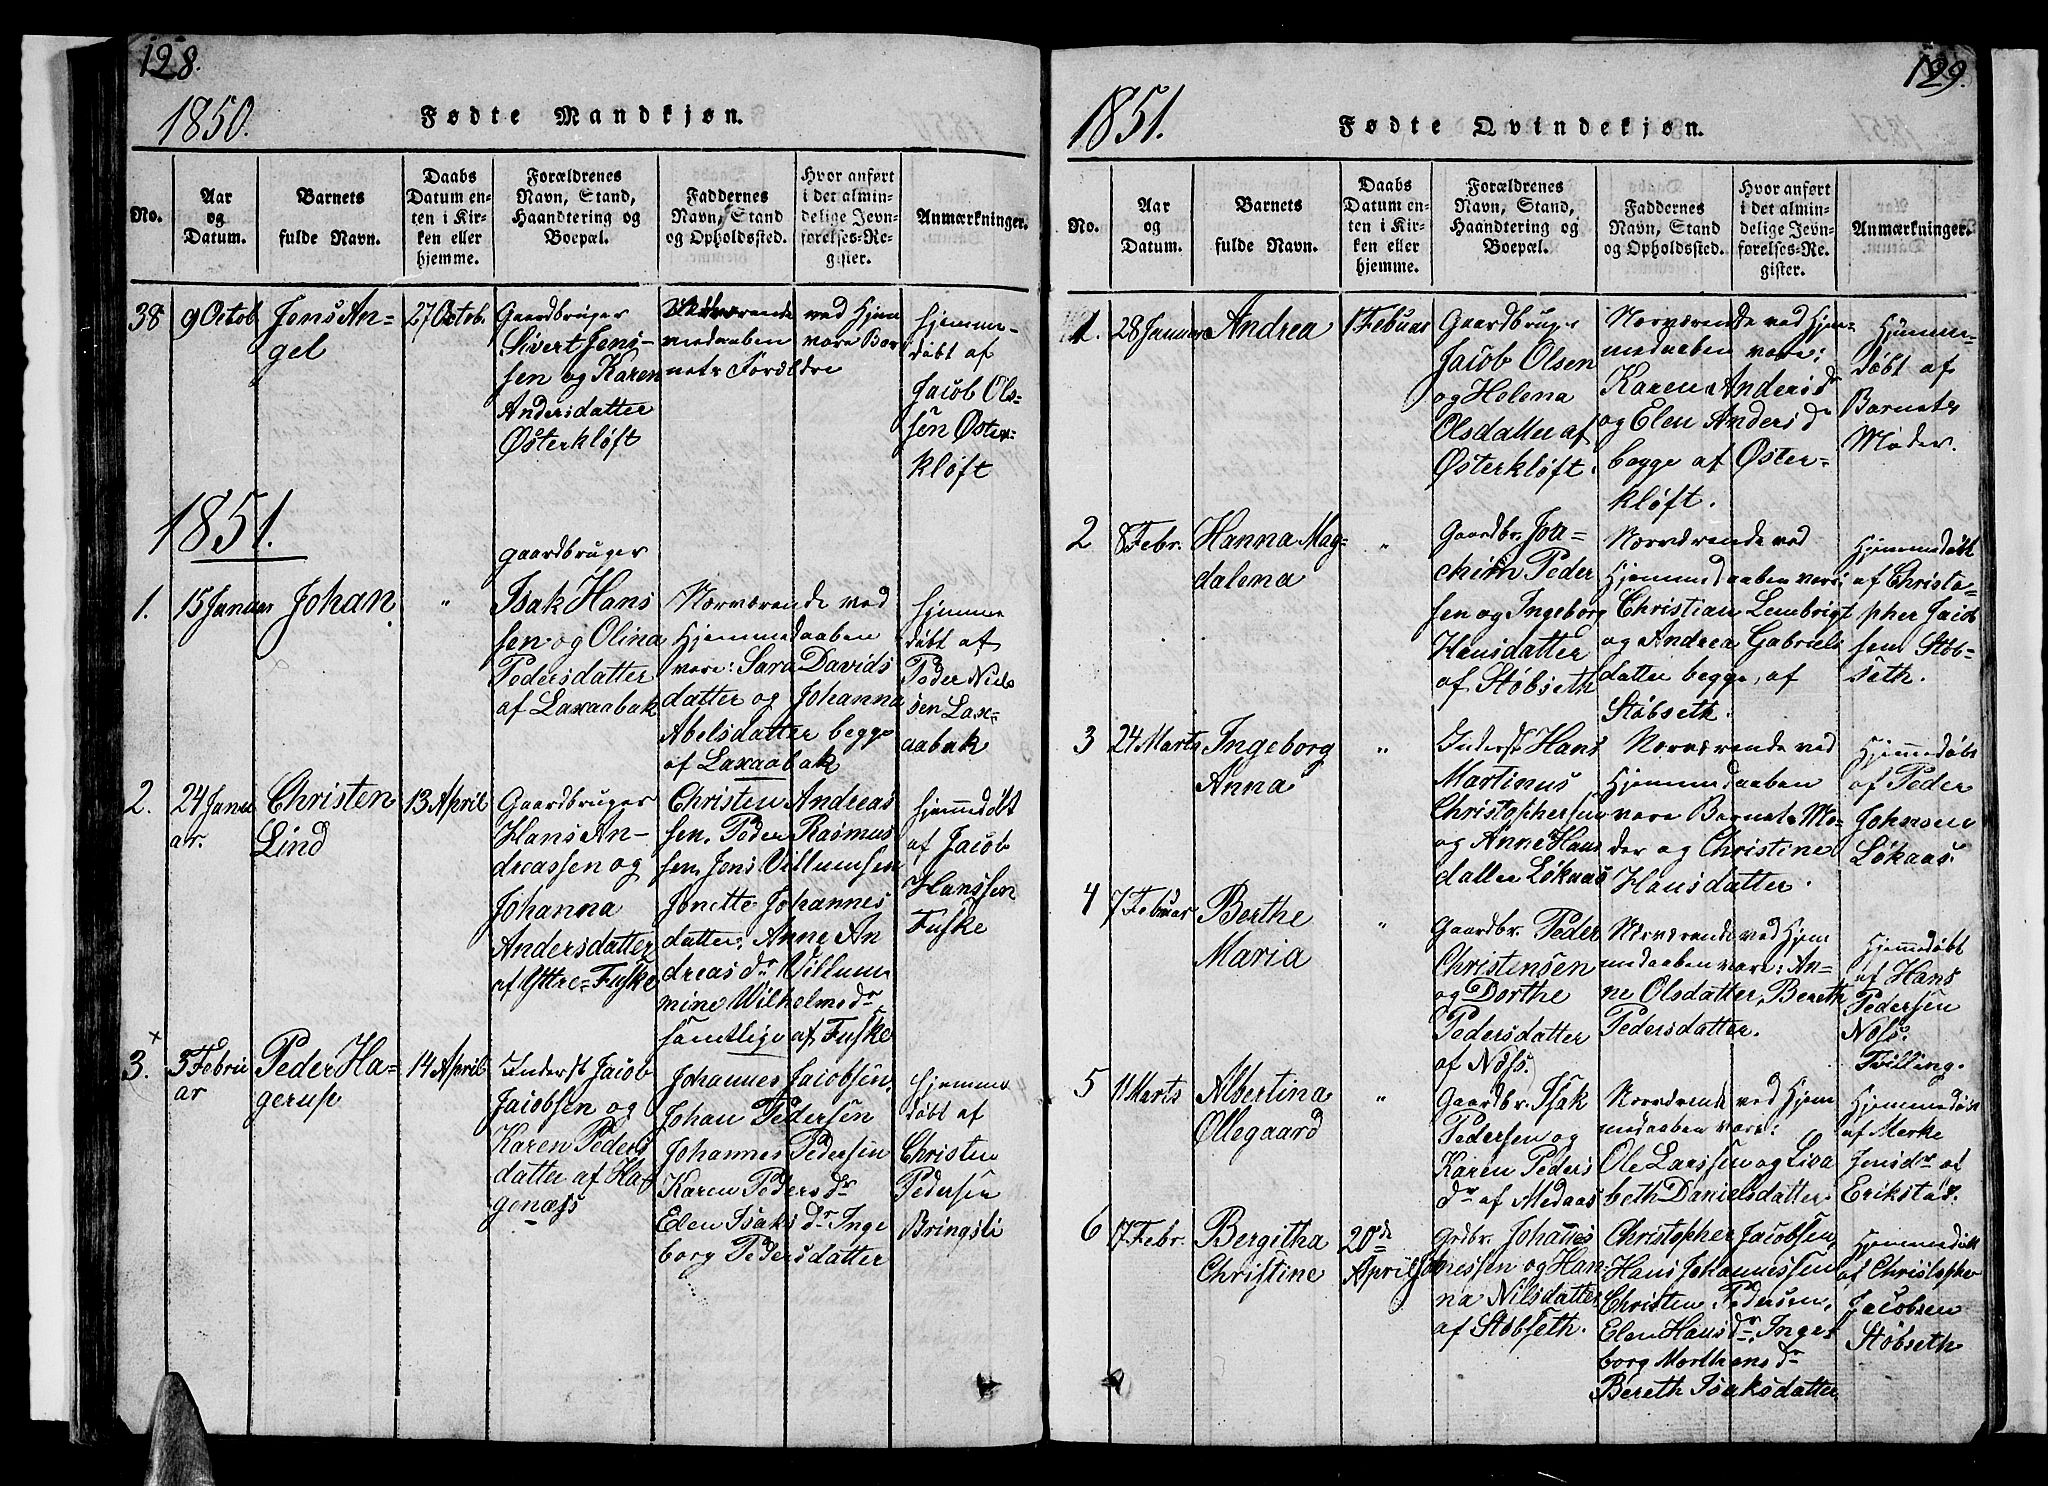 128.
1850.
Fødte Mandkjøn.
No.
Aar
og
Datum.
Barnets
fulde Navn.
Daabs
Datum en-
ten i Kir-
ken eller
hjemme.
Forældrenes
Navn, Stand,
Haandtering og
Boepæl.
Faddernes
Navn, Stand
og Opholdssted.
Hvor anført
i det almin-
delige Jevn-
førelses-Re-
gister.
Anmærkninger.
38
9 Octob
Jens An-
gel
27 Octob.
Gaardbruger
Sivert Jens-
sen og Karen
Andersdatter
Østerkløft
Nærværende ved Hjem
medaaben vare Bar
nets Forældre
Hjemme-
døbt af
Jacob Ols-
sen Øster-
kløft
1851.
1.
15 Januar
Johan
"
Gaardbruger
Isak Hans
sen og Olina
Pedersdatter
af Laxaabak
Nærværende ved
Hjemmedaaben
vare: Sara Davids
datter og Johanna
Abelsdatter begge
af Laxaabak
Hjemme
døbt af
Peder Niels
sen Lax-
aabak
2.
24 Janu
ar.
Christen
Lind
13 April
Gaardbruger
Hans An-
dreassen og
Johanna
Andersdatter
af Yttre-Fuske
Christen Andreas
sen, Peder Rasmus
sen, Jens Villumsen
Jonette Johannes
datter, Anne An
dreas dr Villum
mine Wilhelms dr
samtlige af Fuske
Hjemmedøbt
af Jacob
Hanssen
Fuske
3.
3 Febru
ar
Peder Ha-
gerup
14 April
Inderst Jacob
Jacobsen og
Karen Peders
datter af Ha-
genæss
Johannes Jacobsen,
Johan Pedersen
Johannes Pedersen
Karen Peders dr
Elen Isaks dr Inge
borg Pedersdatter
Hjemme
døbt af
Christen
Pedersen
Bringsli
129.
1851.
Fødte Qvindekjøn.
No.
Aar
og
Datum.
Barnets
fulde Navn.
Daabs
Datum en-
ten i Kir-
ken eller
hjemme.
Forældrenes
Navn, Stand,
Haandtering og
Boepæl.
Faddernes
Navn, Stand
og Opholdssted.
Hvor anført
i det almin-
delige Jevn-
førelses-Re-
gister.
Anmærkninger.
1.
28 Januar
Andrea
1 Febuar
Gaardbruger
Jacob Olsen
og Helena
Olsdatter af
Østerkløft.
Nærværende ved Hjem-
medaaben vare:
Karen Anders dr
og Elen Anders dr
begge af Øster-
kløft.
Hjemme-
døbt af
Barnets
Moder.
2
8 Febr.
Hanna Mag-
dalena
"
Gaardbr. Joa-
chim Peder
sen og Ingeborg
Hansdatter
af Støbseth
Nærværende ved
Hjemmedaaben vare:
Christian Lembrigt
og Andrea Gabriels
datter begge af
Støbseth.
Hjemmedøbt
af Christo-
pher Jacob
sem Støb-
seth.
3
24 Marts
Ingeborg
Anna
"
Inderst Hans
Martinus
Christophersen
og Anne Hans
datter Løkaas
Nærværende ved
Hjemmedaaben
vare Barnets Mo-
der og Christine
Hansdatter.
Hjemmedøbt
af Peder
Johnsen
Løkaas.
4
7 Febuar
Berthe
Maria
"
Gaardbr. Peder
Christensen
og Dorthe
Pedersdatter
af Næss.
Nærværende ved Hjem
medaaben vare: An-
ne Olsdatter, Bereth
Pedersdatter.
Hjemmedøbt
af Hans
Pedersen
Næss.
Tvilling.
5
11 Marts
Albertina
Øllegaard
"
Gaardbr. Isak
Pedersen og
Karen Peders
dr af Medaas
Nærværende ved Hjem
medaaben vare:
Ole Larssen og Lisa
beth Danielsdatter.
Hjemmedøbt
af Merke
Jensdr af
Erikstad.
6
17 Febr.
Bergitha
Christine
20de
April
Grdbr. Johan̄es
Johannessen og Han-
na Nilsdatter
af Støbseth.
Christopher Jacobsen,
Hans Johannessen
Christen Pedersen,
Elen Hans dr, Inge
borg Morthens dr
Bereth Isaksdatter
Hjemmedøbt
af Christopher
Jacobsen
Støbseth